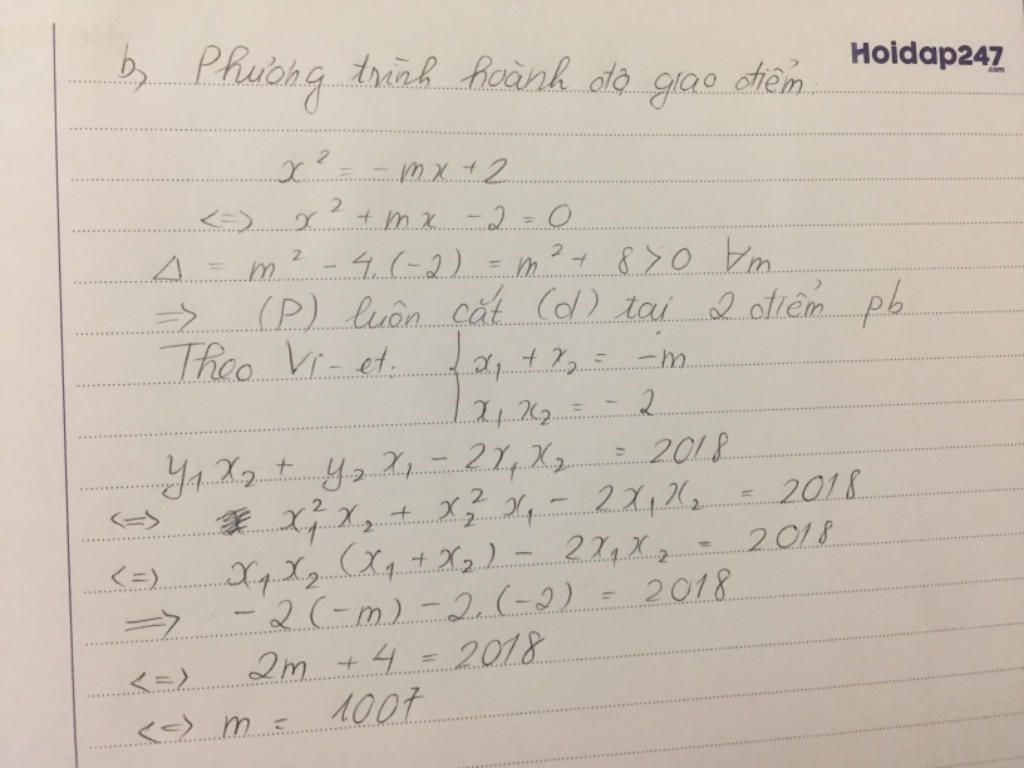 Hoidap247
.com
b, Phương trình hoành độ giao điểm:
x² = -mx + 2
<=> x² + mx - 2 = 0
Δ = m² - 4.(-2) = m² + 8 > 0 ∀m
=> (P) luôn cắt (d) tại 2 điểm pb
Theo Vi-et: { x₁ + x₂ = -m
x₁x₂ = -2
y₁x₂ + y₂x₁ - 2x₁x₂ = 2018
<=> x₁²x₂ + x₂²x₁ - 2x₁x₂ = 2018
<=> x₁x₂(x₁ + x₂) - 2x₁x₂ = 2018
=> -2(-m) - 2.(-2) = 2018
<=> 2m + 4 = 2018
<=> m = 1007